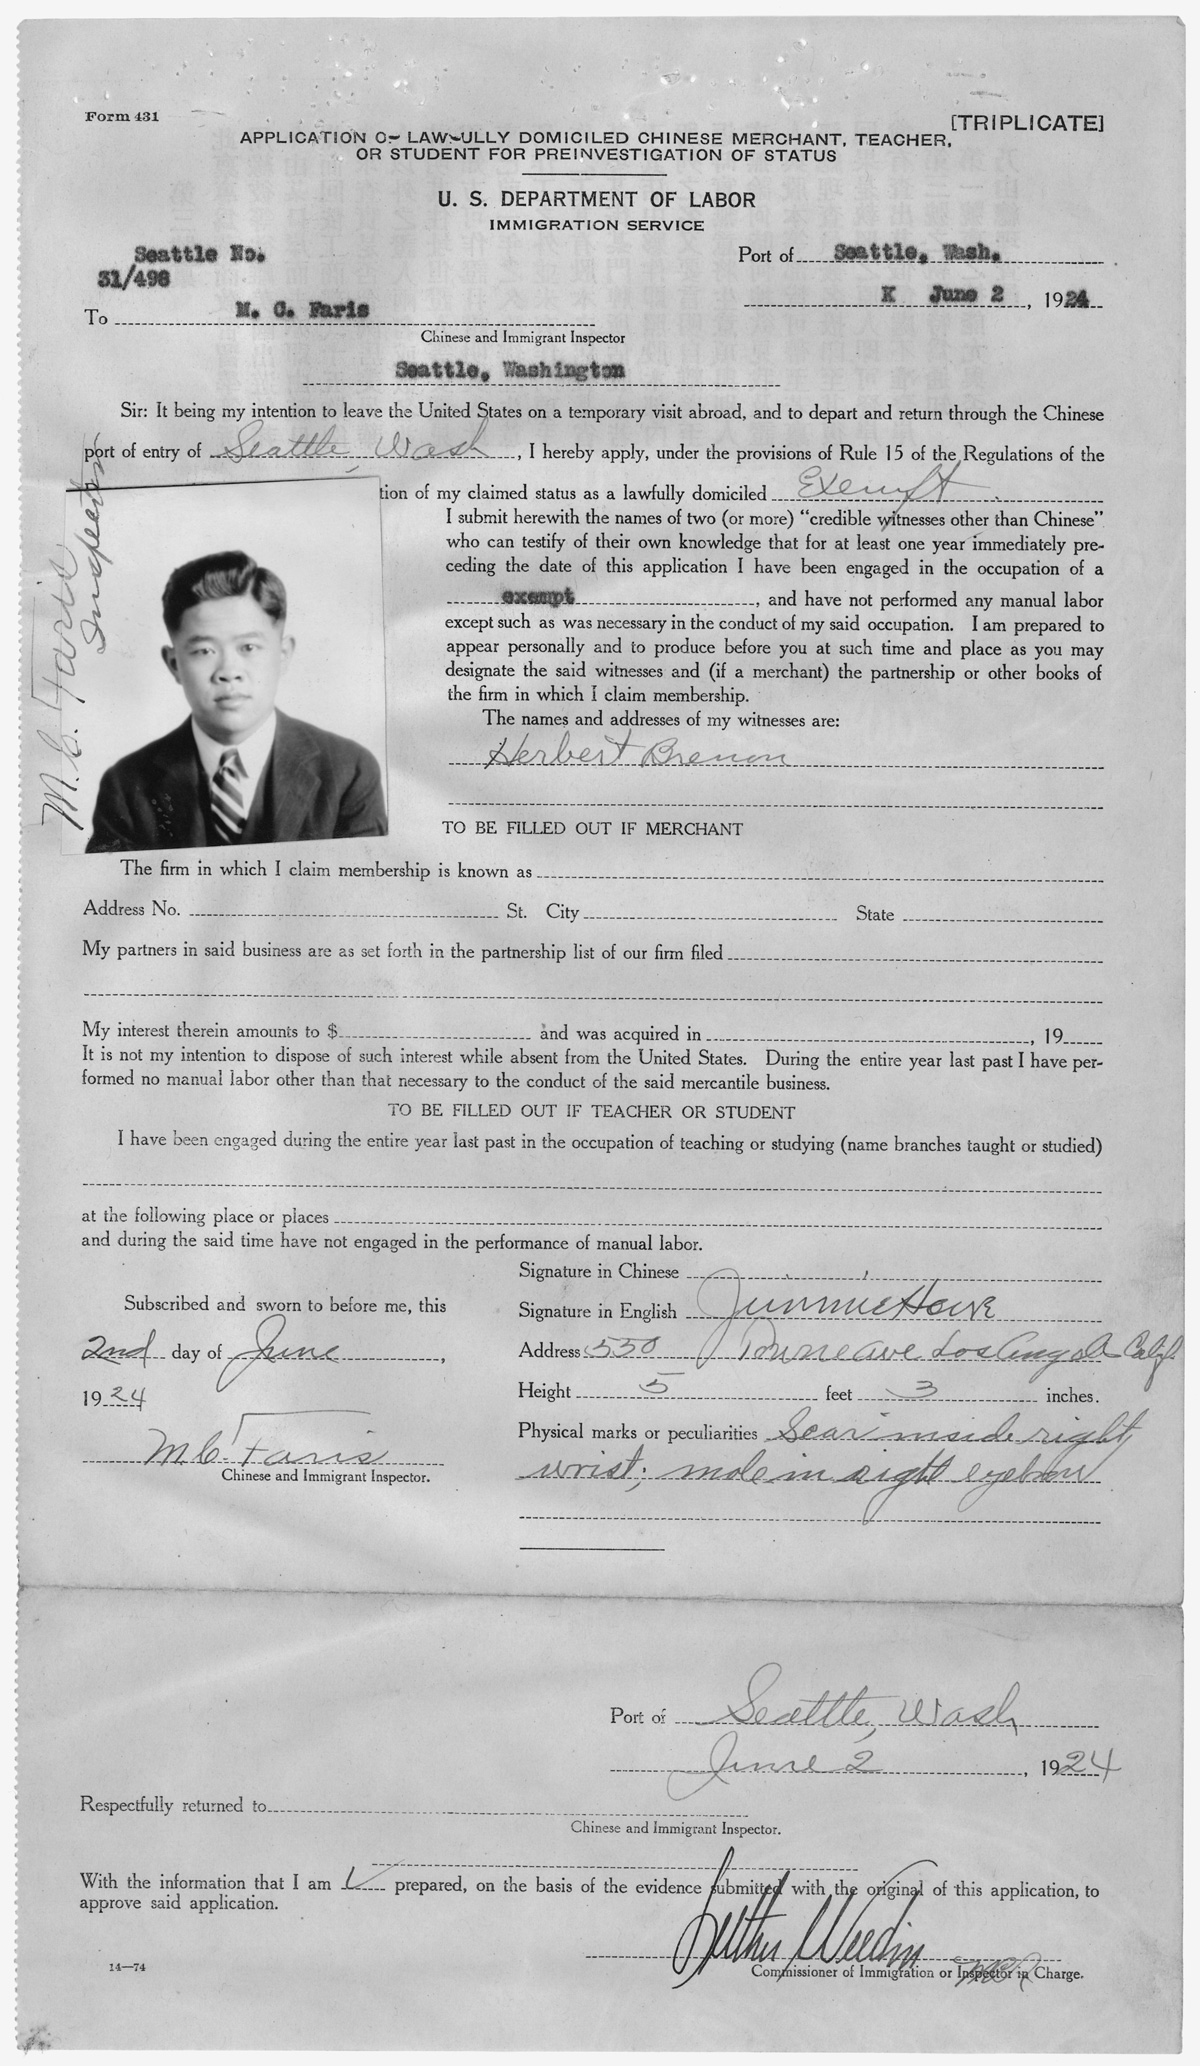 Form 431
[TRIPLICATE]
APPLICATION OF LAWFULLY DOMICILED CHINESE MERCHANT, TEACHER,
OR STUDENT FOR PREINVESTIGATION OF STATUS
U. S. DEPARTMENT OF LABOR
IMMIGRATION SERVICE
Seattle No.
31/498
Port of Seattle, Wash.
K June 2, 1924
To M. C. Faris
Chinese and Immigrant Inspector
Seattle, Washington
Sir: It being my intention to leave the United States on a temporary visit abroad, and to depart and return through the Chinese
port of entry of Seattle, Wash, I hereby apply, under the provisions of Rule 15 of the Regulations of the
tion of my claimed status as a lawfully domiciled Exempt.
M. C. Faris
Inspector
I submit herewith the names of two (or more) “credible witnesses other than Chinese”
who can testify of their own knowledge that for at least one year immediately pre-
ceding the date of this application I have been engaged in the occupation of a
exempt, and have not performed any manual labor
except such as was necessary in the conduct of my said occupation. I am prepared to
appear personally and to produce before you at such time and place as you may
designate the said witnesses and (if a merchant) the partnership or other books of
the firm in which I claim membership.
The names and addresses of my witnesses are:
Herbert Brenon
TO BE FILLED OUT IF MERCHANT
The firm in which I claim membership is known as
Address No. St. City State
My partners in said business are as set forth in the partnership list of our firm filed
My interest therein amounts to $ and was acquired in , 19
It is not my intention to dispose of such interest while absent from the United States. During the entire year last past I have per-
formed no manual labor other than that necessary to the conduct of the said mercantile business.
TO BE FILLED OUT IF TEACHER OR STUDENT
I have been engaged during the entire year last past in the occupation of teaching or studying (name branches taught or studied)
at the following place or places
and during the said time have not engaged in the performance of manual labor.
Signature in Chinese
Subscribed and sworn to before me, this
Signature in English Jimmie Howe
2nd day of June,
Address 550 Towne ave Los Angeles Calif.
1924
Height 5 feet 3 inches.
M. C. Faris
Chinese and Immigrant Inspector.
Physical marks or peculiarities Scar inside right
wrist; mole in right eyebrow
Port of Seattle, Wash
June 2, 1924
Respectfully returned to
Chinese and Immigrant Inspector.
With the information that I am prepared, on the basis of the evidence submitted with the original of this application, to
approve said application.
Luther Weedin
Commissioner of Immigration or Inspector in Charge.
14—74